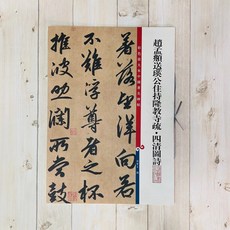 趙孟頫送瑛公住持隆教寺疏·四清圖詩
著落望洋向若
不難浮尊者之杯
推波助瀾所當鼓